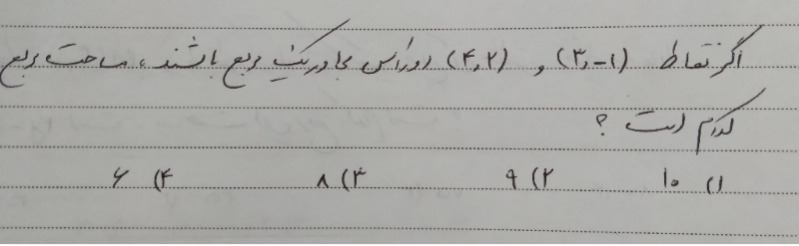 اگر نقاط (۳,-۱) و (۴,۲) دو رأس مجاور یک مربع باشند، مساحت مربع
کدام است ؟
۱) ۱۰ ۲) ۹ ۳) ۸ ۴) ۶